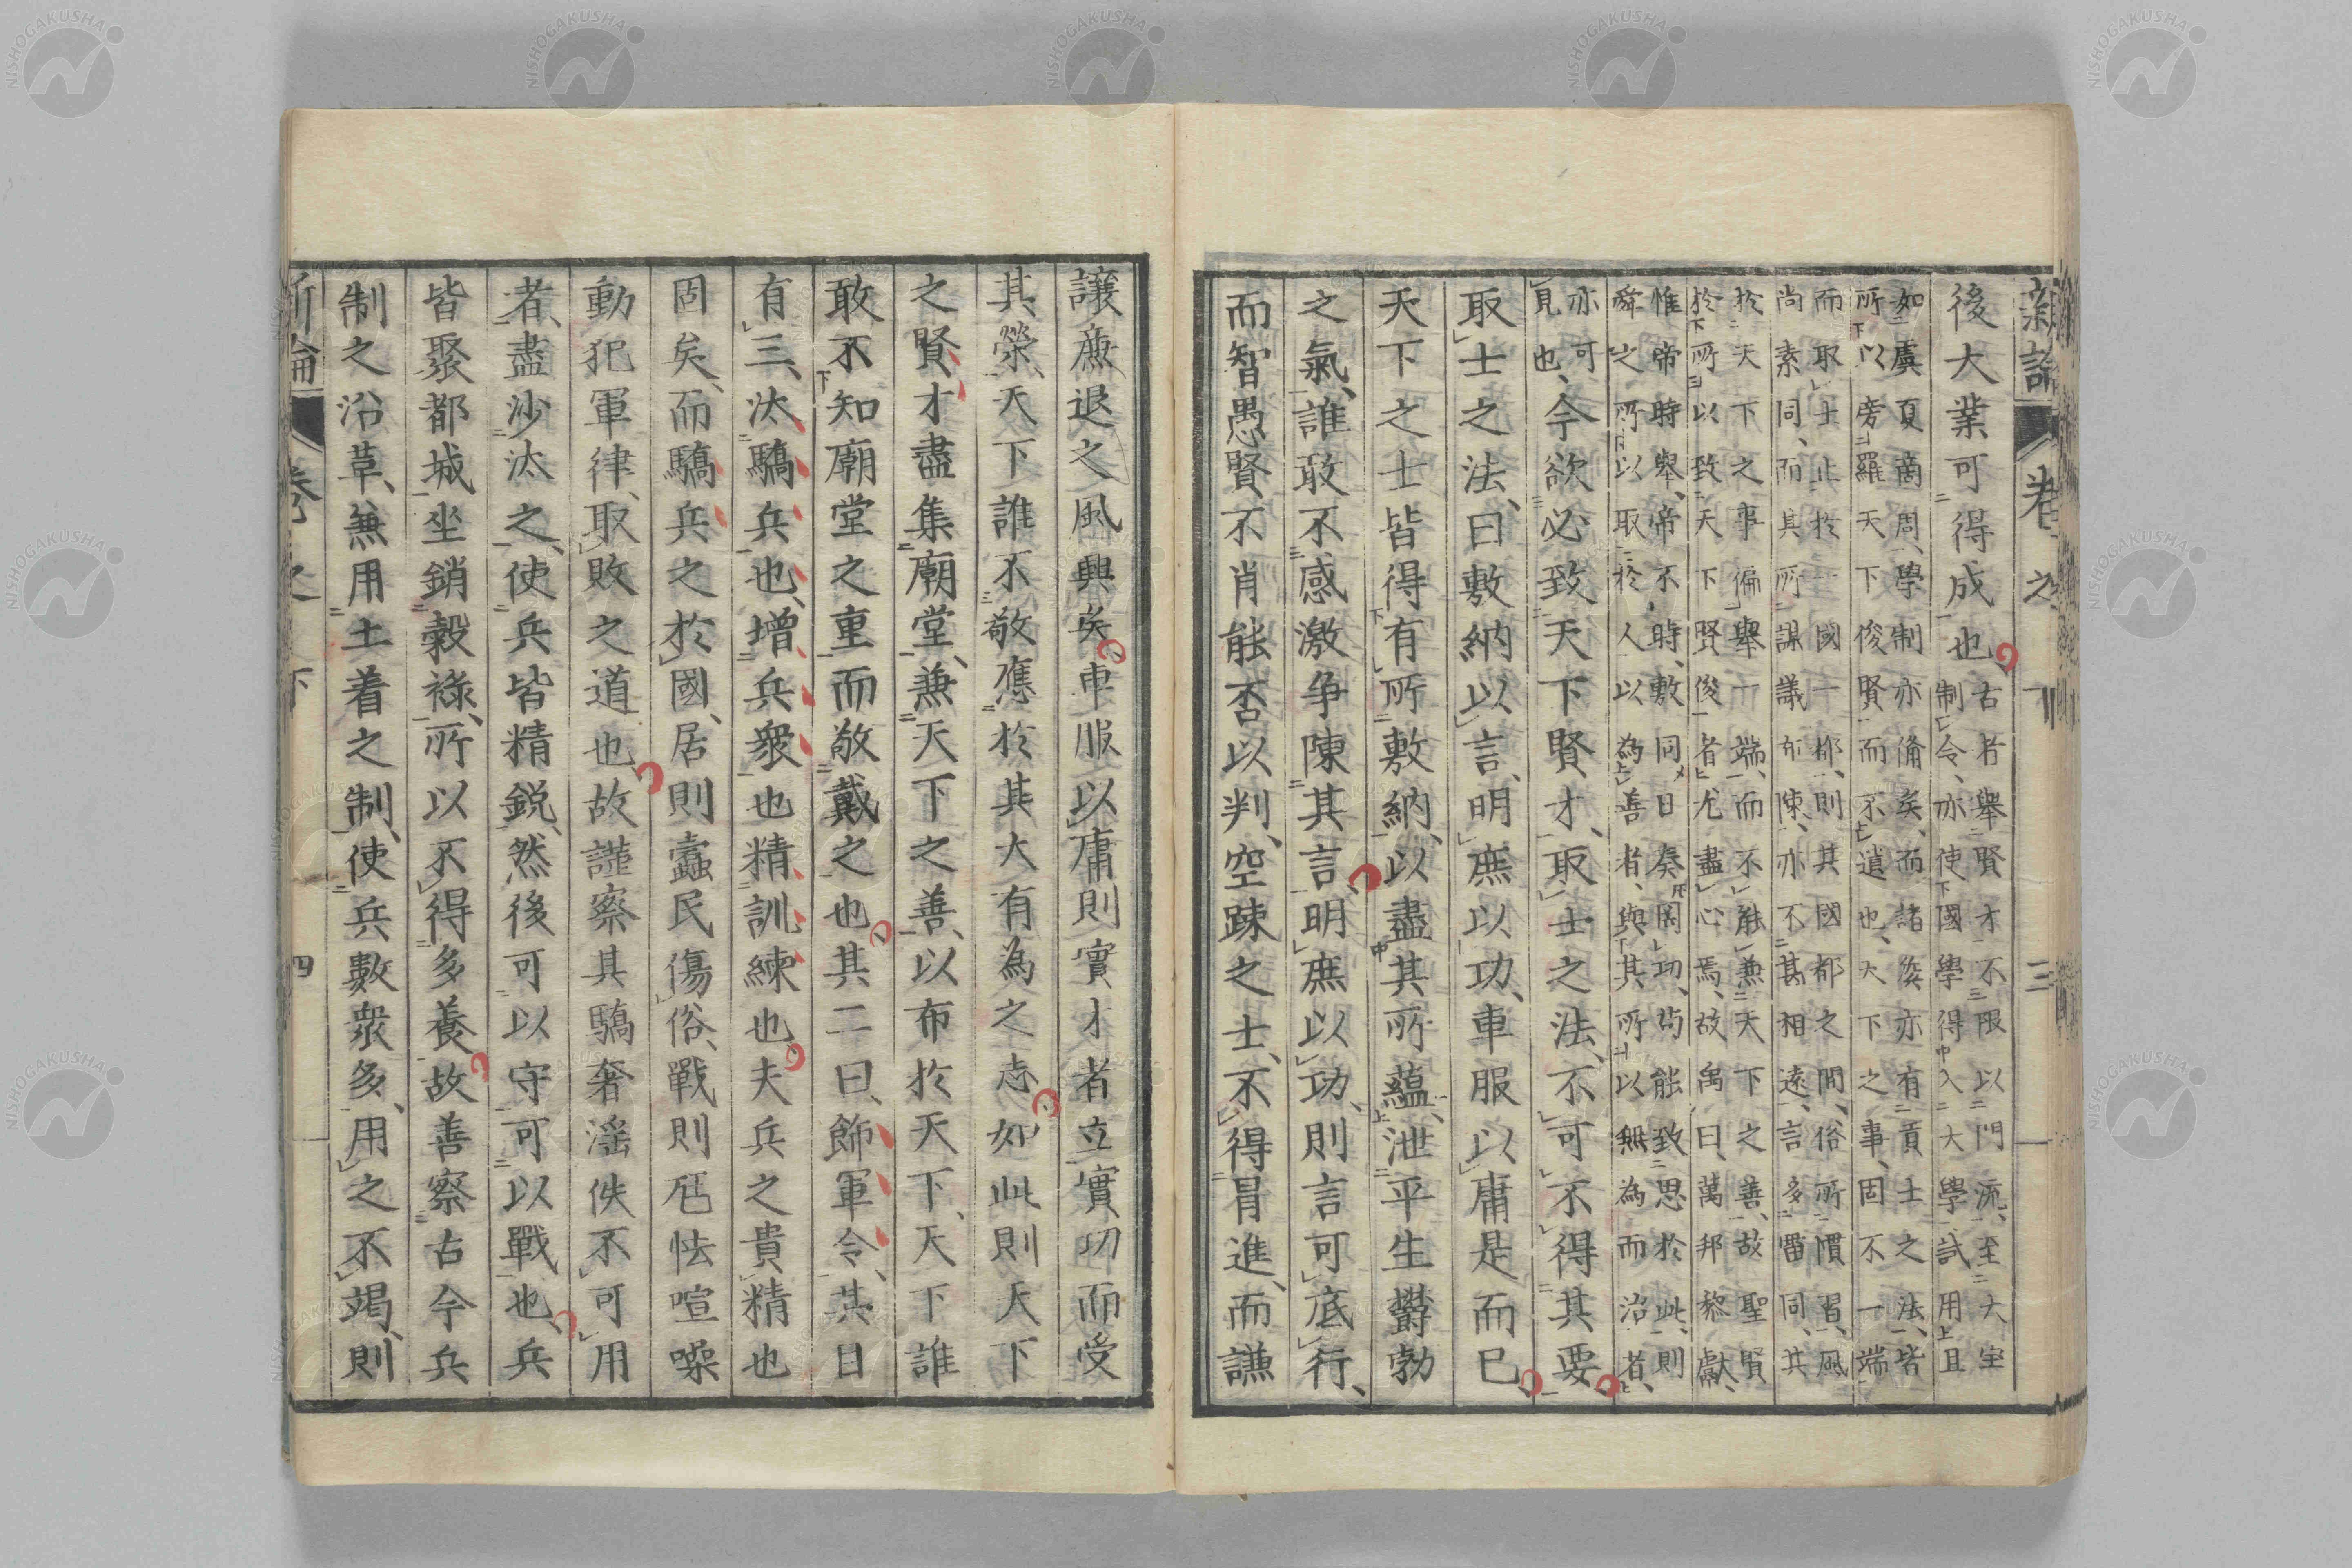 新論 卷之下 三
後大業可得成也、
古者舉賢才不限以門流、至大宰
制令、亦使國學得入大學試用且
如虞夏商周、學制亦備矣、而諸侯亦有貢士之法、皆
所以旁羅天下俊賢而不遺也、大下之事、固不一端
而取士止於一國一都、則其國都之間、俗所慣習、風
尚素同、而其所謀議布陳、亦不甚相遠、言多雷同、其
於天下之事偏舉一端、而不能兼天下之善、故聖賢
於所以致天下賢俊者尤盡心焉、故禹曰、萬邦黎獻、
惟帝時舉、帝不時、敷同日奏罔功、尚能致思於此、則
舜之所以取於人以為善者、與其所以無為而治者、
亦可
見也、
今欲必致天下賢才、取士之法、不可不得其要
取士之法、曰敷納以言、明庶以功、車服以庸是而已
天下之士皆得有所敷納、以盡其所蘊、泄平生欝勃
之氣、誰敢不感激争陳其言、明庶以功、則言可底行、
而智愚賢不肖能否以判、空踈之士、不得冒進、而謙
讓廉退之風興矣車服以庸則實才者立實功而受
其榮、天下誰不敬應於其大有為之志如此則天下
之賢、才盡集廟堂、兼天下之善、以布於天下、天下誰
敢不知廟堂之重而敬戴之也其二曰、飾軍令、其目
有三、汰驕兵也、增兵衆也精訓練也夫兵之貴精也
固矣、而驕兵之於國、居則蠹民傷俗、戰則尫怯喧噪
動犯軍律、取敗之道也故謹察其驕奢滛佚不可用
者、盡沙汰之、使兵皆精鋭、然後可以守可以戰也、兵
皆聚都城坐銷穀祿、所以不得多養、故善察古今兵
制之沿革、無用土着之制、使兵數衆多、用之不竭、則
新論 卷之下 四